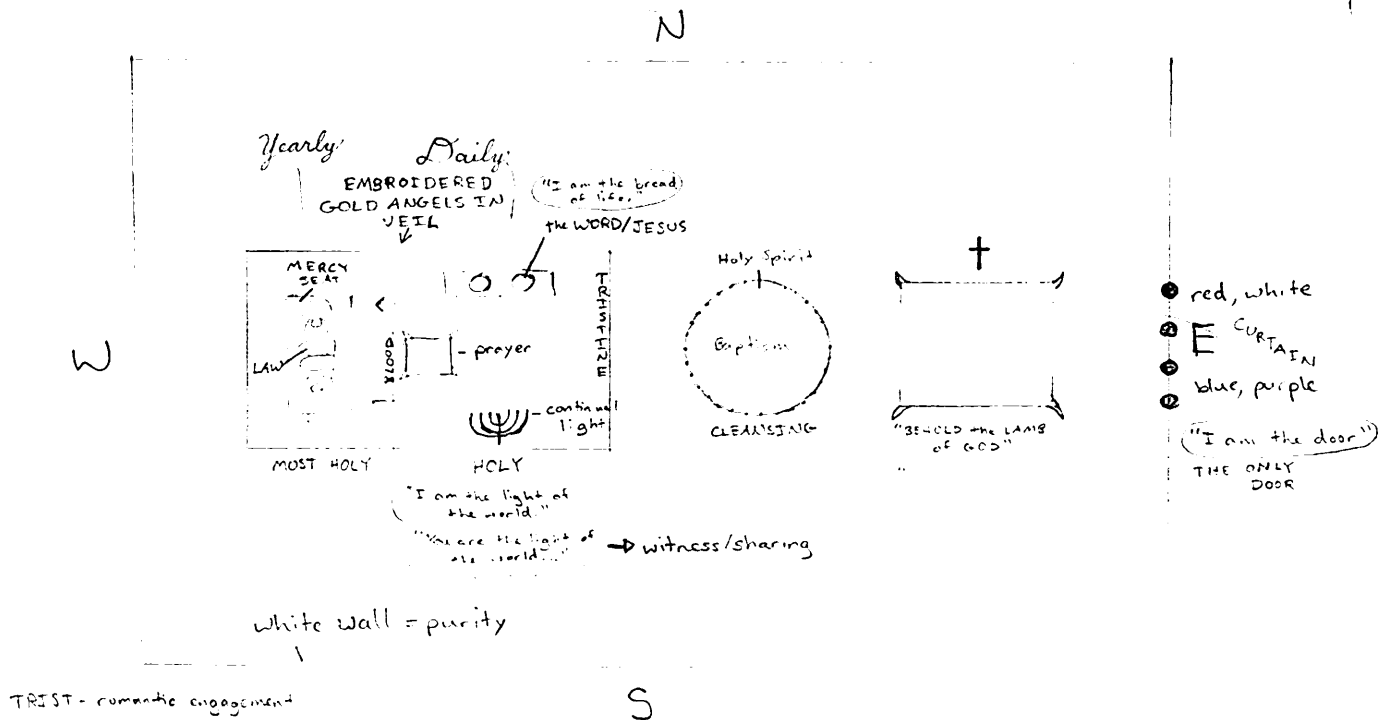 N
Yearly:
Daily:
EMBROIDERED
GOLD ANGELS IN
VEIL
"I am the bread
of life."
the WORD/JESUS
MERCY
SEAT
LAW
prayer
continual
light
MOST HOLY
HOLY
"I am the light of
the world."
"You are the light of
the world..."
witness/sharing
Holy Spirit
Baptism
CLEANSING
"BEHOLD the LAMB
of GOD"
red, white
E CURTAIN
blue, purple
"I am the door"
THE ONLY
DOOR
W
white wall = purity
S
TRIST - romantic engagement